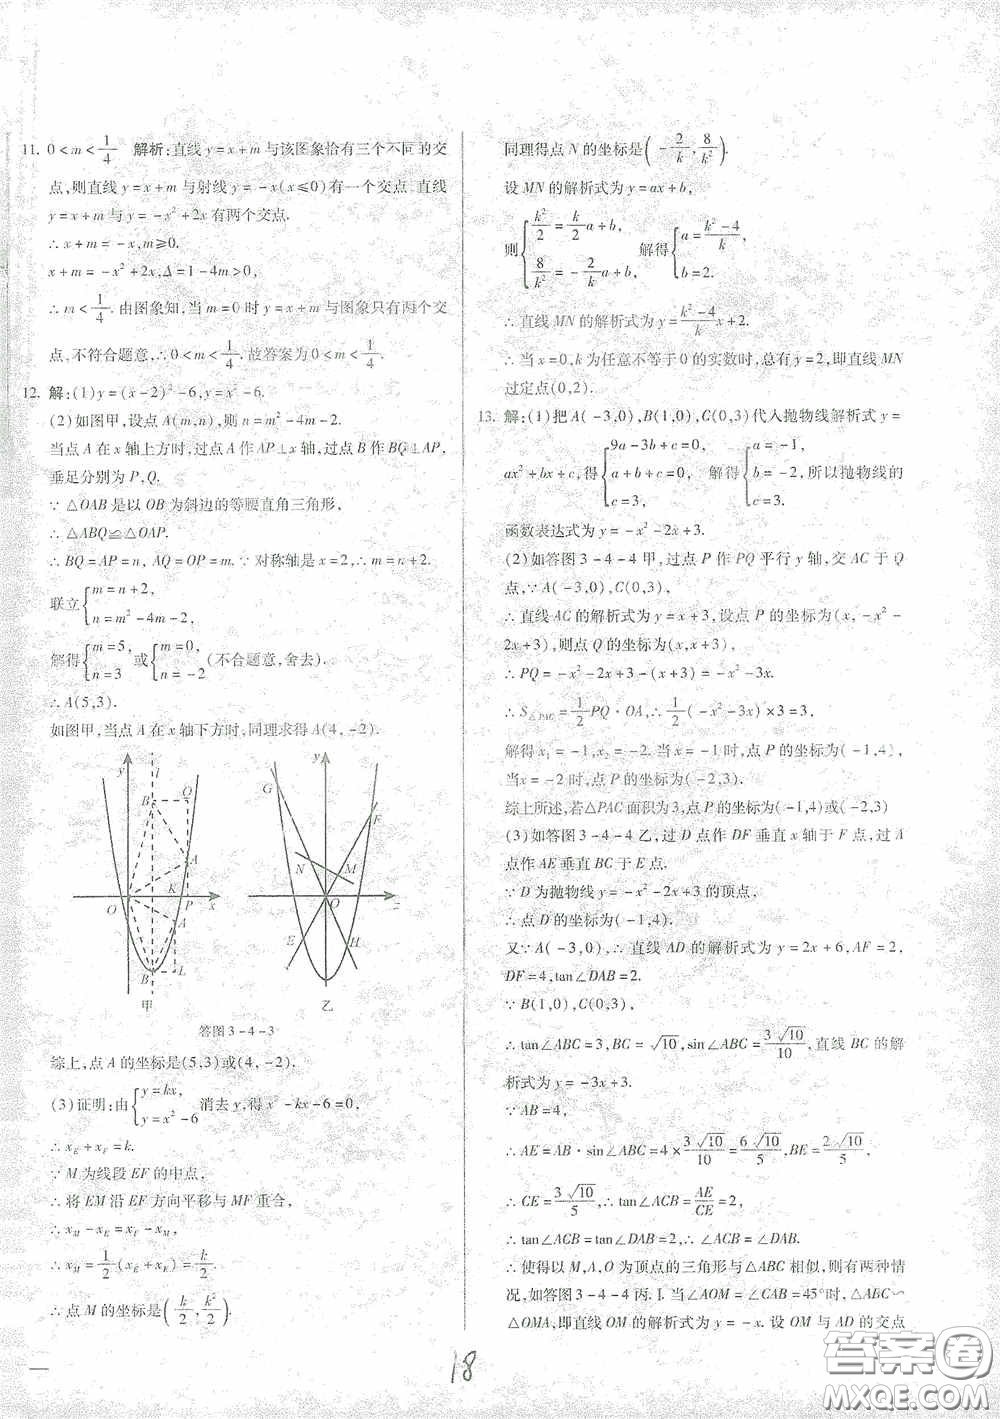 11. 0<m<1/4 解析:直线y=x+m与该图象恰有三个不同的交
点,则直线y=x+m与射线y=-x(x≤0)有一个交点,直线
y=x+m与y=-x²+2x有两个交点.
∴x+m=-x,m≥0.
x+m=-x²+2x,Δ=1-4m>0,
∴m<1/4.由图象知,当m=0时y=x+m与图象只有两个交
点,不符合题意,∴0<m<1/4.故答案为0<m<1/4.
12. 解:(1)y=(x-2)²-6,y=x²-6.
(2)如图甲,设点A(m,n),则n=m²-4m-2.
当点A在x轴上方时,过点A作AP⊥x轴,过点B作BQ⊥AP,
垂足分别为P,Q.
∵△OAB是以OB为斜边的等腰直角三角形,
∴△ABQ≌△OAP.
∴BQ=AP=n,AQ=OP=m.∵对称轴是x=2,∴m=n+2.
联立{m=n+2, n=m²-4m-2,
解得{m=5, n=3 或{m=0, n=-2 (不合题意,舍去).
∴A(5,3).
如图甲,当点A在x轴下方时,同理求得A(4,-2).
y l B Q A K O P x A B L 甲
y G F N M O x E H 乙
答图3-4-3
综上,点A的坐标是(5,3)或(4,-2).
(3)证明:由{y=kx, y=x²-6 消去y,得x²-kx-6=0,
∴x_E+x_F=k.
∵M为线段EF的中点,
∴将EM沿EF方向平移与MF重合,
∴x_M-x_E=x_F-x_M,
∴x_M=1/2(x_E+x_F)=k/2.
∴点M的坐标是(k/2,k²/2).
同理得点N的坐标是(-2/k,8/k²).
设MN的解析式为y=ax+b,
则{k²/2=k/2a+b, 8/k²=-2/ka+b, 解得{a=(k²-4)/k, b=2.
∴直线MN的解析式为y=(k²-4)/k x+2.
∴当x=0,k为任意不等于0的实数时,总有y=2,即直线MN
过定点(0,2).
13. 解:(1)把A(-3,0),B(1,0),C(0,3)代入抛物线解析式y=
ax²+bx+c,得{9a-3b+c=0, a+b+c=0, c=3, 解得{a=-1, b=-2, c=3, 所以抛物线的
函数表达式为y=-x²-2x+3.
(2)如答图3-4-4甲,过点P作PQ平行y轴,交AC于Q
点,∵A(-3,0),C(0,3),
∴直线AC的解析式为y=x+3,设点P的坐标为(x,-x²-
2x+3),则点Q的坐标为(x,x+3),
∴PQ=-x²-2x+3-(x+3)=-x²-3x.
∴S△PAC=1/2PQ·OA,∴1/2(-x²-3x)×3=3,
解得x₁=-1,x₂=-2.当x=-1时,点P的坐标为(-1,4),
当x=-2时,点P的坐标为(-2,3).
综上所述,若△PAC面积为3,点P的坐标为(-1,4)或(-2,3)
(3)如答图3-4-4乙,过D点作DF垂直x轴于F点,过A
点作AE垂直BC于E点.
∵D为抛物线y=-x²-2x+3的顶点,
∴点D的坐标为(-1,4).
又∵A(-3,0),∴直线AD的解析式为y=2x+6,AF=2,
DF=4,tan∠DAB=2.
∵B(1,0),C(0,3),
∴tan∠ABC=3,BC=√10,sin∠ABC=3√10/10,直线BC的解
析式为y=-3x+3.
∵AB=4,
∴AE=AB·sin∠ABC=4×3√10/10=6√10/5,BE=2√10/5,
∴CE=3√10/5,∴tan∠ACB=AE/CE=2,
∴tan∠ACB=tan∠DAB=2,
∴使得以M,A,O为顶点的三角形与△ABC相似,则有两种情
况,如答图3-4-4丙.I.当∠AOM=∠CAB=45°时,△ABC∽
△OMA,即直线OM的解析式为y=-x.设OM与AD的交点
18
答案圈
MXQE.COM